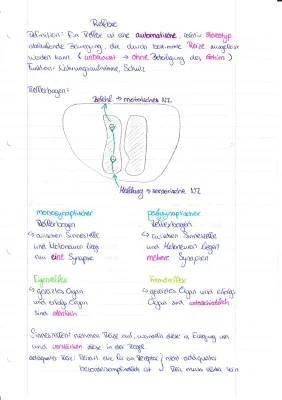 Reflexe
Definition: Ein Reflex ist eine automatische, relativ stereotyp
ablaufende Bewegung, die durch bestimmte Reize ausgelöst
werden kann (unbewusst → ohne Beteiligung des Gehirns)
Funktion: Nahrungsaufnahme, Schutz
Reflexbogen:
Befehl → motorisches NZ
Meldung → sensorische NZ
monosynaptischer
Reflexbogen
↳ zwischen Sinneszelle
und Motoneuron liegt
nur eine Synapse
polysynaptischer
Reflexbogen
↳ zwischen Sinneszelle
und Motoneuron liegen
mehrere Synapsen
Eigenreflex
↳ gereiztes Organ
und Erfolgsorgan
sind identisch
Fremdreflex
↳ gereiztes Organ und Erfolgs
Organ sind unterschiedlich
Sinneszellen: nehmen Reize auf, wandeln diese in Erregung um
und verstärken diese in der Regel
adäquater Reiz: Reizart die für ein Rezeptor
besonders empfindlich ist
nicht adäquater
Reiz muss stärker sein